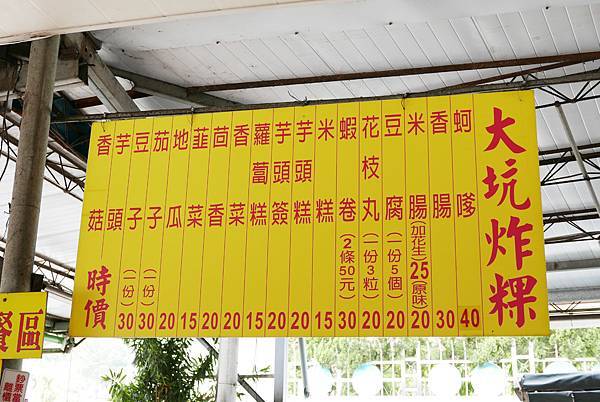 大坑炸粿
蚵嗲 40
香腸 30
米腸(加花生)25(原味)20
豆腐(一份5個)20
花枝丸(一份3粒)20
蝦卷(2條50元)30
米糕 15
芋頭糕 20
芋頭簽 20
蘿蔔糕 15
香菜 20
茴香 20
韮菜 15
地瓜 20
茄子(一份)30
豆子(一份)30
芋頭
香菇 時價
區